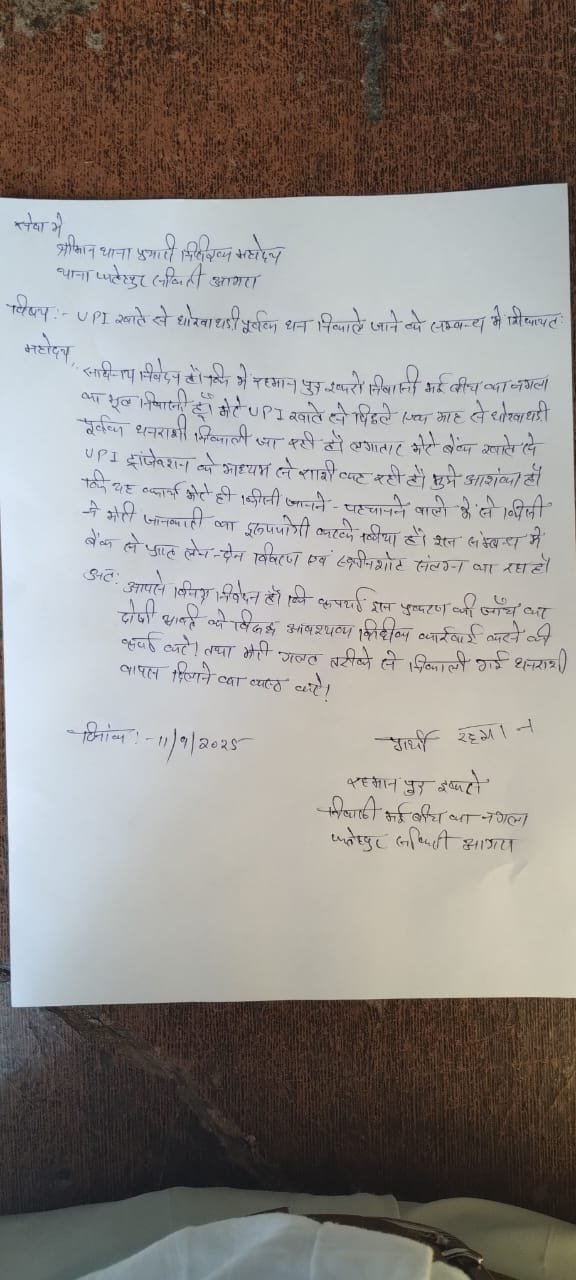 सेवा में
श्रीमान थाना प्रभारी निरीक्षक महोदय
थाना फतेहपुर सीकरी आगरा
विषय :- UPI खाते से धोखाधडी पूर्वक धन निकाले जाने के सम्बन्ध में शिकायत:
महोदय,
सविनय निवेदन है। कि मैं रहमान पुत्र निवासी नई बीच का नगला
का मूल निवासी हूँ मेरे UPI खाते से पिछले एक माह से धोखाधडी
पूर्वक धनराशी निकाली जा रही है। लगातार मेरे बैंक खाते से
UPI ट्रांजेक्शन के माध्यम से राशी कट रही है। मुझे आशंका है।
कि यह कार्य मेरे ही किसी जानने - पहचानने वालो में से किसी
ने मेरी जानकारी का दुरूपयोग करके किया है। इस सम्बन्ध में
बैंक से प्राप्त लेन-देन विवरण एवं स्क्रीनशॉट संलग्न कर रहा हूँ।
अत: आपसे विनम्र निवेदन है। कि कृपया इस प्रकरण की जाँच कर
दोषी व्यक्ति के विरूद्ध आवश्यक विधिक कार्यवाई करने की
कृपा करे। तथा मेरी गलत तरीके से निकाली गई धनराशी
वापस दिलाने का कष्ट करे!
दिनांक :- 11/9/2025
प्रार्थी रहमान
रहमान पुत्र
निवासी नई बीच का नगला
फतेहपुर सीकरी आगरा